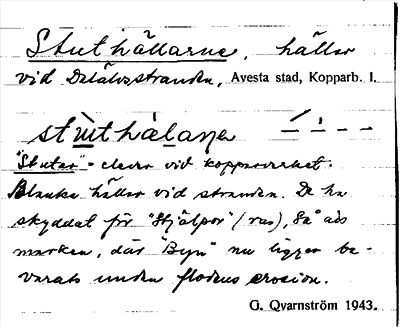 Stuthällarne, hällar
vid Dalälvsstranden, Avesta stad, Kopparb. l.
stùthæ̀laṇa
"Stutar" = elever vid kopparverket.
Blanka hällar vid stranden. De ha
skyddat för "Hjälpor" (ras), så att
marken, där "Byn" nu ligger be-
varats undan flodens erosion.
G. Qvarnström 1943.